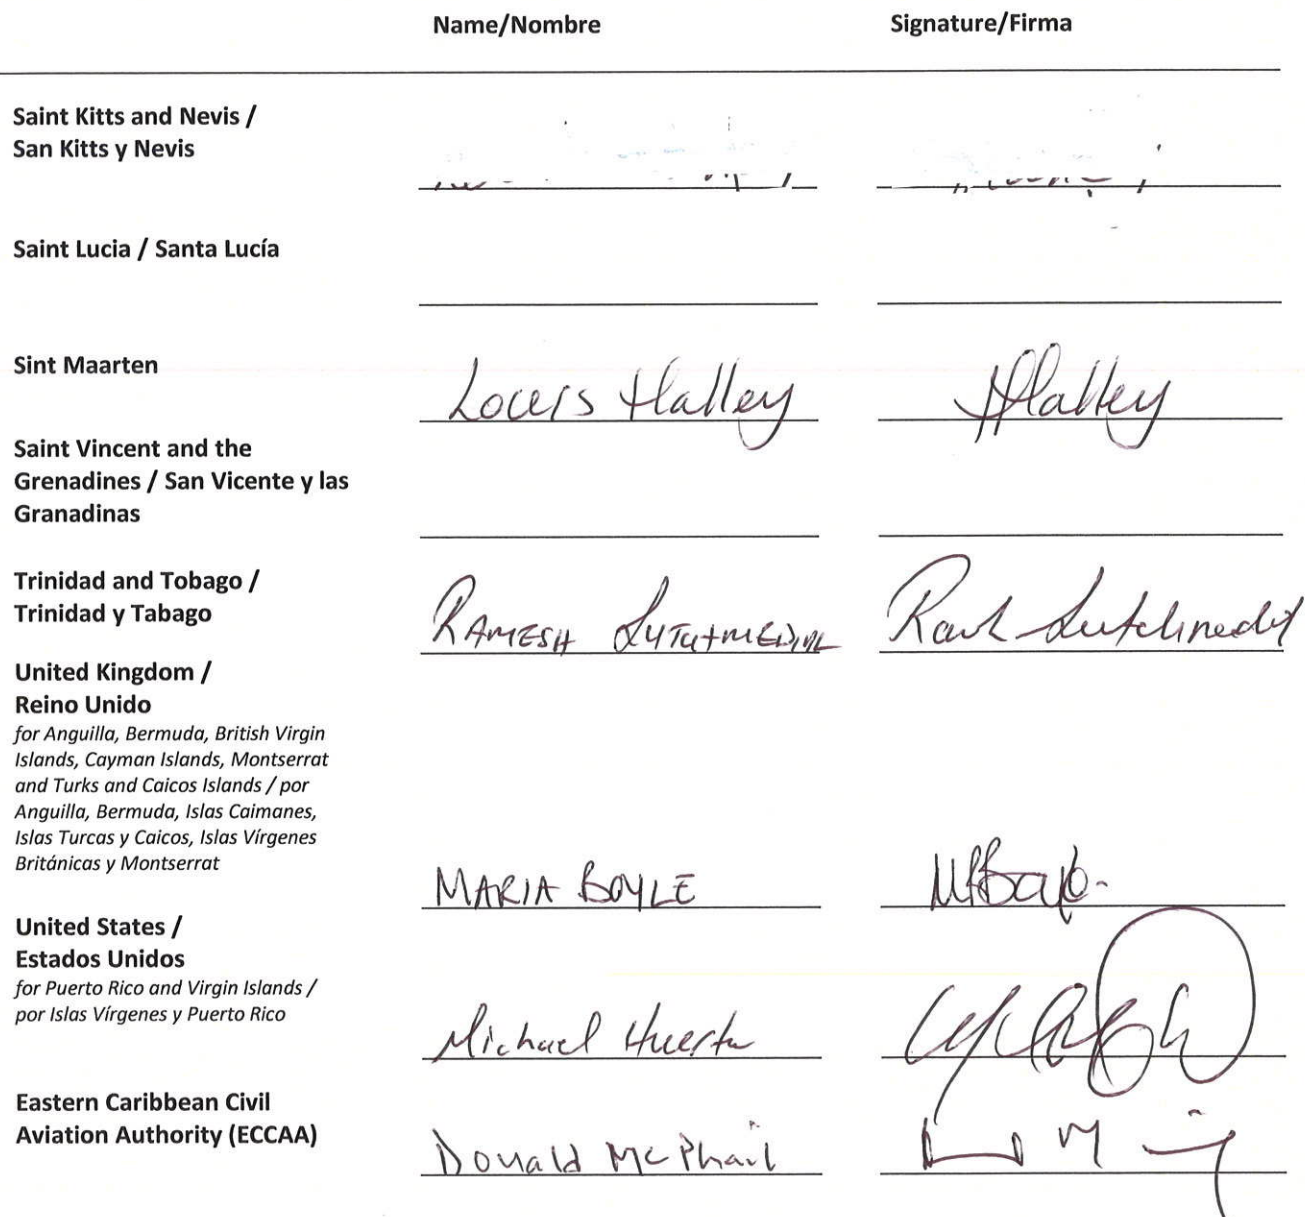 Name/Nombre Signature/Firma
Saint Kitts and Nevis /
San Kitts y Nevis
Saint Lucia / Santa Lucía
Sint Maarten
Louis Halley Halley
Saint Vincent and the
Grenadines / San Vicente y las
Granadinas
Trinidad and Tobago /
Trinidad y Tabago
RAMESH LUTCHMEDIAL
United Kingdom /
Reino Unido
for Anguilla, Bermuda, British Virgin
Islands, Cayman Islands, Montserrat
and Turks and Caicos Islands / por
Anguilla, Bermuda, Islas Caimanes,
Islas Turcas y Caicos, Islas Vírgenes
Británicas y Montserrat
MARIA BOYLE
United States /
Estados Unidos
for Puerto Rico and Virgin Islands /
por Islas Vírgenes y Puerto Rico
Michael Huerta
Eastern Caribbean Civil
Aviation Authority (ECCAA)
Donald McPhail